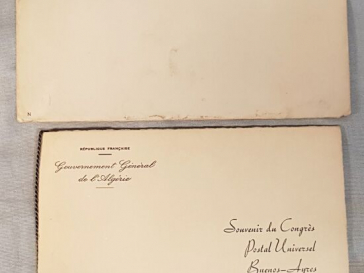 RÉPUBLIQUE FRANÇAISE
Gouvernement Général
de l'Algérie
Souvenir du Congrès
Postal Universel
Buenos-Ayres